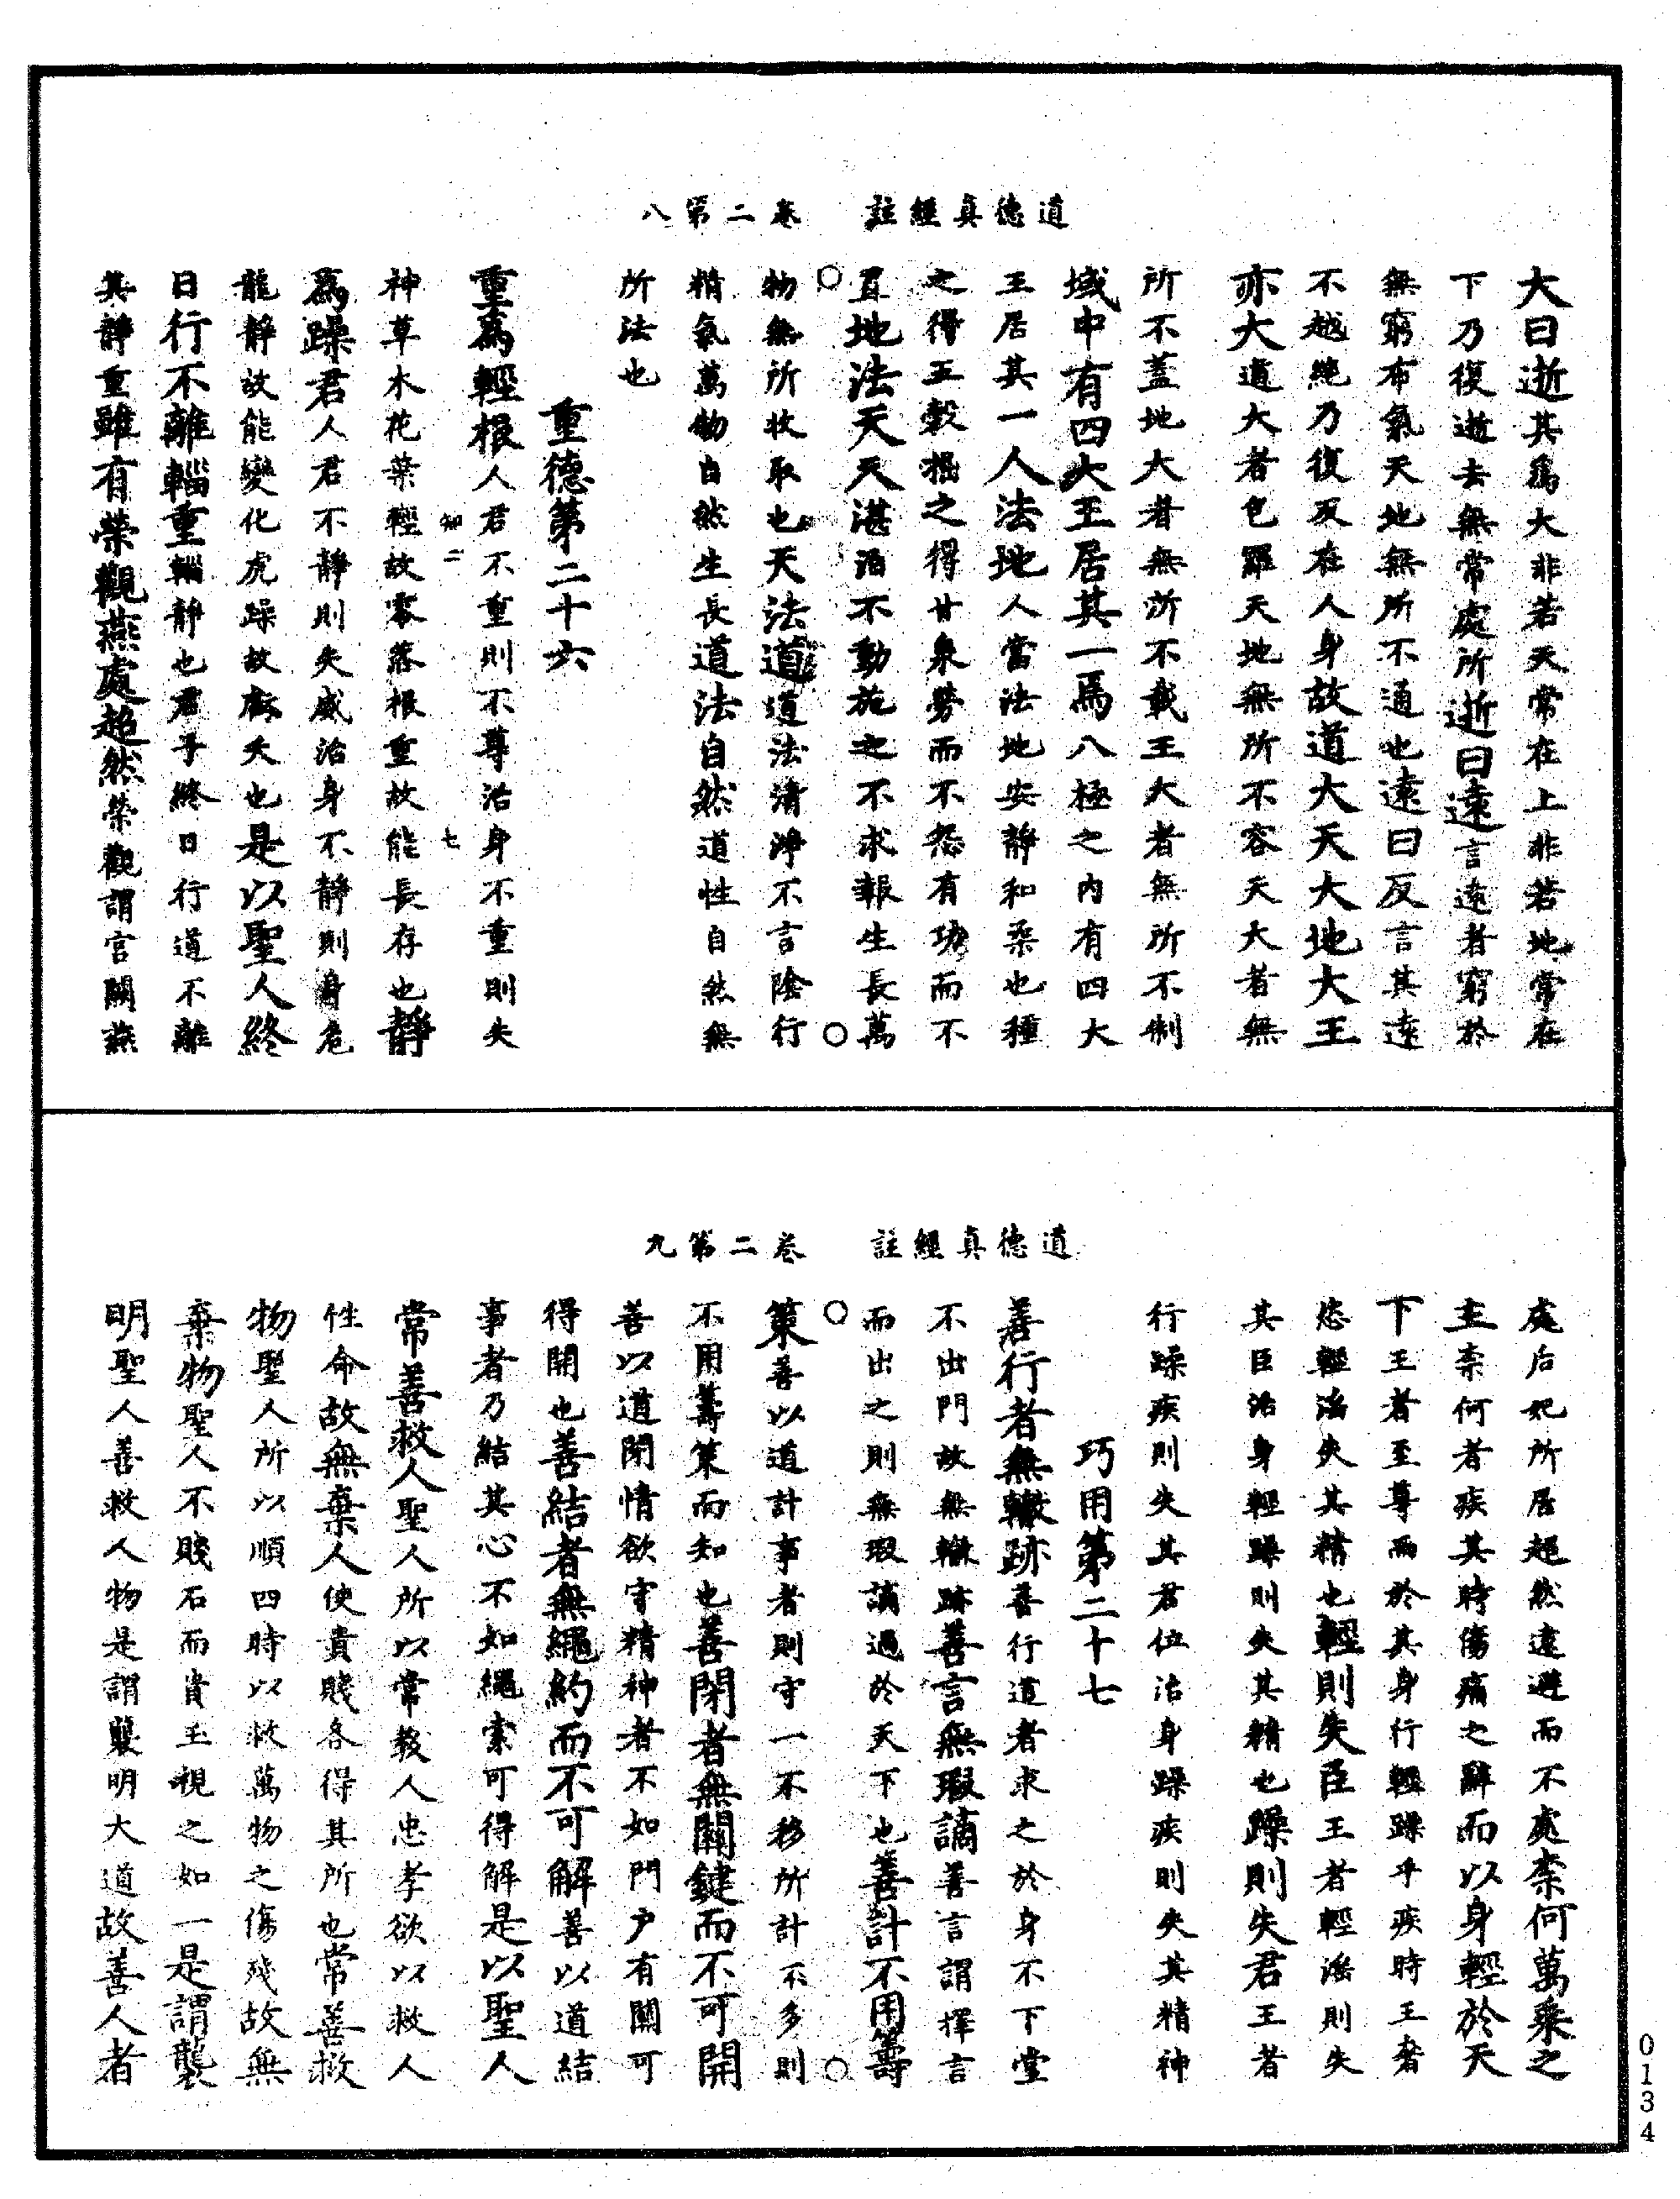 道德真經註　卷二第八
大曰逝其爲大非若天常在上非若地常在
下乃復逝去無常處所逝曰遠言遠者窮於
無窮布氣天地無所不通也遠曰反言其遠
不越絶乃復反在人身故道大天大地大王
亦大道大者包羅天地無所不容天大者無
所不蓋地大者無所不載王大者無所不制
域中有四大王居其一焉八極之內有四大
王居其一人法地人當法地安靜和柔也種
之得五穀掘之得甘泉勞而不怨有功而不
置地法天天湛泊不動施之不求報生長萬
物無所收取也天法道道法清淨不言陰行
精氣萬物自然生長道法自然道性自然無
所法也
重德第二十六
重爲輕根人君不重則不尊治身不重則失
知二　七
神草木花葉輕故零落根重故能長存也靜
爲躁君人君不靜則失威治身不靜則身危
龍靜故能變化虎躁故虧夭也是以聖人終
日行不離輜重輜靜也君子終日行道不離
其靜重雖有榮觀燕處超然榮觀謂宫闕燕
道德真經註　卷二第九
處后妃所居超然遠避而不處柰何萬乘之
主柰何者疾其時傷痛之辭而以身輕於天
下王者至尊而於其身行輕躁乎疾時王奢
恣輕淫失其精也輕則失臣王者輕淫則失
其臣治身輕躁則失其精也躁則失君王者
行躁疾則失其君位治身躁疾則失其精神
巧用第二十七
善行者無轍跡善行道者求之於身不下堂
不出門故無轍跡善言無瑕謫善言謂擇言
而出之則無瑕謫過於天下也善計不用籌
策善以道計事者則守一不移所計不多則
不用籌策而知也善閉者無關鍵而不可開
善以道閉情欲守精神者不如門户有關可
得開也善結者無繩約而不可解善以道結
事者乃結其心不如繩索可得解是以聖人
常善救人聖人所以常教人忠孝欲以救人
性命故無棄人使貴賤各得其所也常善救
物聖人所以順四時以救萬物之傷殘故無
棄物聖人不賤石而貴玉視之如一是謂襲
明聖人善救人物是謂襲明大道故善人者
0134